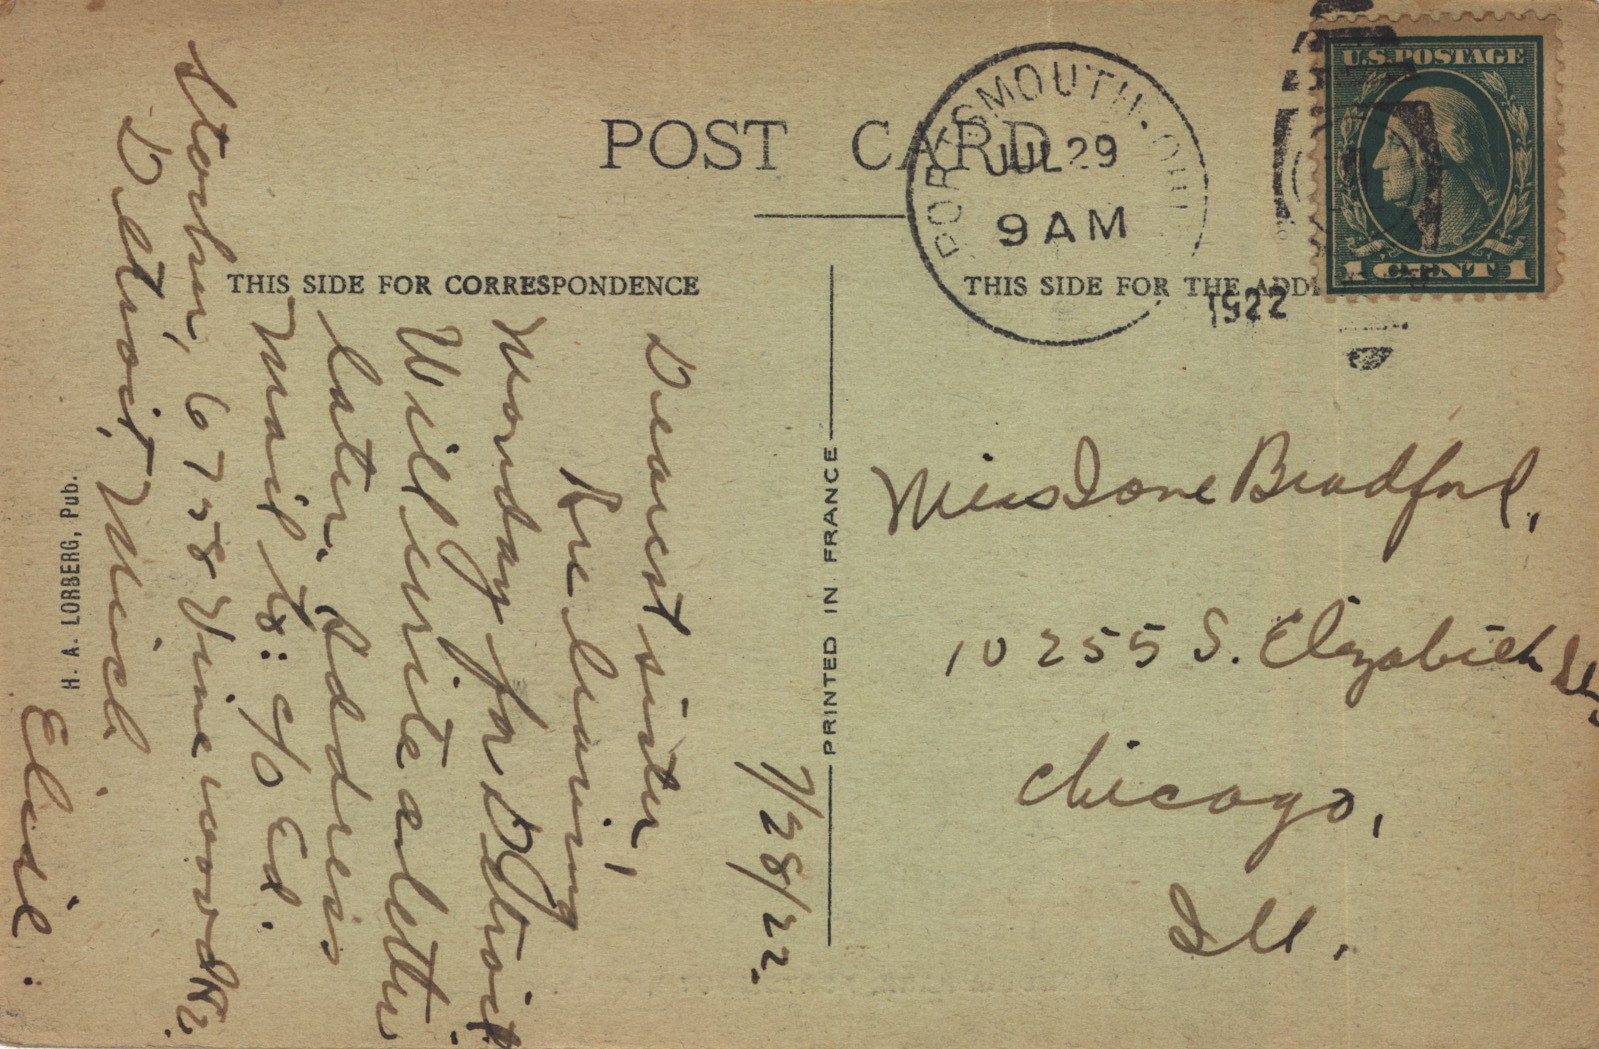 POST CARD
PORTSMOUTH. OHI
JUL 29
9 AM
1922
U.S. POSTAGE
1 CENT 1
THIS SIDE FOR CORRESPONDENCE
THIS SIDE FOR THE ADD
7/28/22.
Dearest sister,
Are leaving
Monday for Detroit
Will write a letter
later. Address
Mail to: c/o Ed.
6758 Vinewood Av.
Detroit, Mich.
Elsie.
H. A. LORBERG, Pub.
PRINTED IN FRANCE
Miss Ione Bradford,
10255 S. Elizabeth St,
Chicago,
Ill.